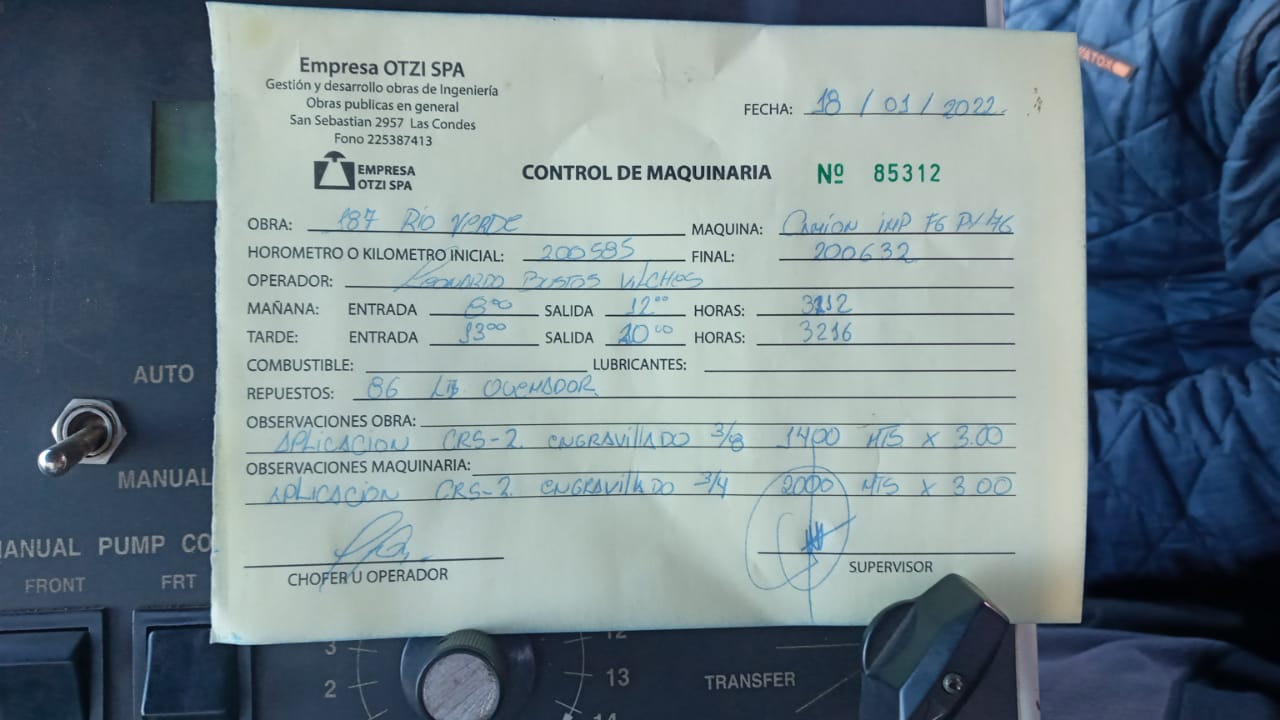 Empresa OTZI SPA
Gestión y desarrollo obras de Ingeniería
Obras publicas en general
San Sebastian 2957 Las Condes
Fono 225387413
FECHA: 18 / 01 / 2022
EMPRESA
OTZI SPA
CONTROL DE MAQUINARIA Nº 85312
OBRA: 187 Rio VERDE MAQUINA: CAMIÓN IMP F6 PV 46
HOROMETRO O KILOMETRO INICIAL: 200585 FINAL: 200632
OPERADOR: LEONARDO BUSTOS VILCHES
MAÑANA: ENTRADA 8:00 SALIDA 12:00 HORAS: 3212
TARDE: ENTRADA 13:00 SALIDA 20:00 HORAS: 3216
COMBUSTIBLE: LUBRICANTES:
REPUESTOS: 86 Lts QUEMADOR
OBSERVACIONES OBRA:
APLICACION CRS-2 ENGRAVILLADO 3/8 1400 MTS X 3.00
OBSERVACIONES MAQUINARIA:
APLICACION CRS-2 ENGRAVILLADO 3/4 2000 MTS X 3 00
CHOFER U OPERADOR
SUPERVISOR
AUTO
MANUAL
MANUAL PUMP CO
FRONT FRT
3
2
12
13
14
TRANSFER